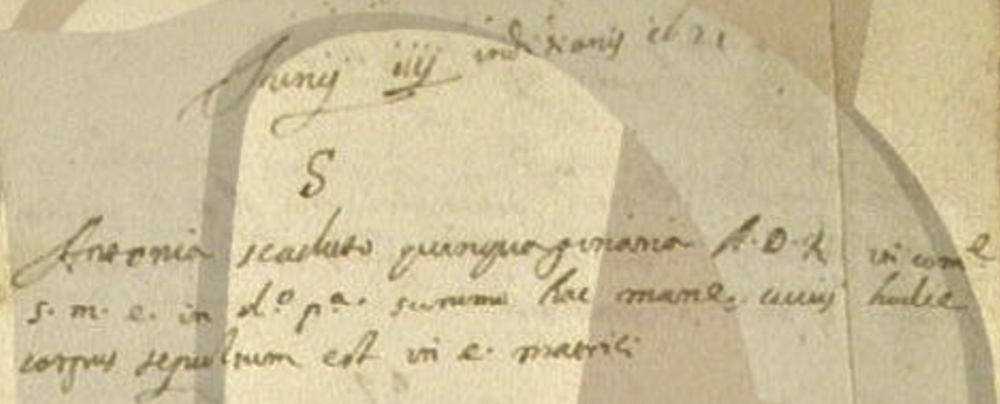 Junij iiij inditionis 1621
S
Antonia scaduto quinquagenaria A. D. R. in com.e
s. m. e. in d.o p.a. summo hac mane. cuius hodie
corpus sepultum est in e. matrici